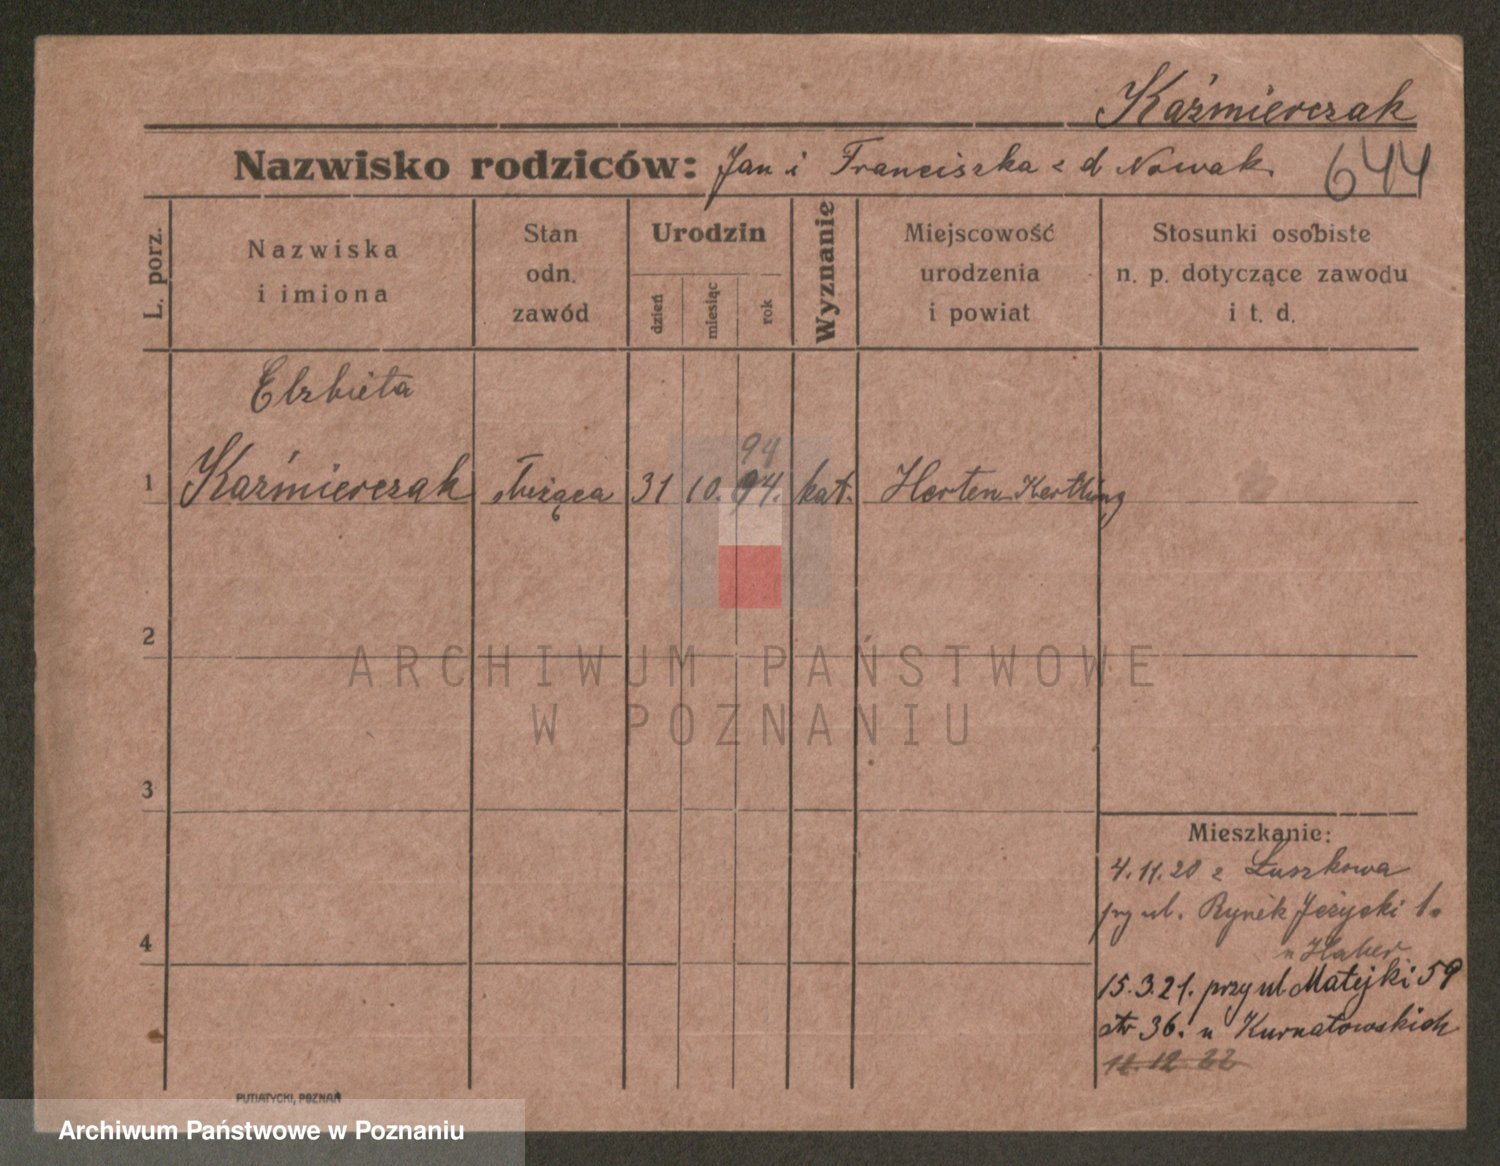 Kaźmierczak
Nazwisko rodziców: Jan i Franciszka z d Nowak
644
L. porz.
Nazwiska
i imiona
Stan
odn.
zawód
Urodzin
dzień
miesiąc
rok
Wyznanie
Miejscowość
urodzenia
i powiat
Stosunki osobiste
n. p. dotyczące zawodu
i t. d.
Elzbieta
94
1 Kaźmierczak służąca 31 10. 94. kat. Herten
2
3
4
Mieszkanie:
4.11.20 z Łuszkowa
przy ul. Rynek Jeżycki 1.
u Haber
15.3.21. przy ul Matejki 59
str 36. u Kurnatowskich
12.12.22
PUTIATYCKI, POZNAŃ
ARCHIWUM PAŃSTWOWE
W POZNANIU
Archiwum Państwowe w Poznaniu